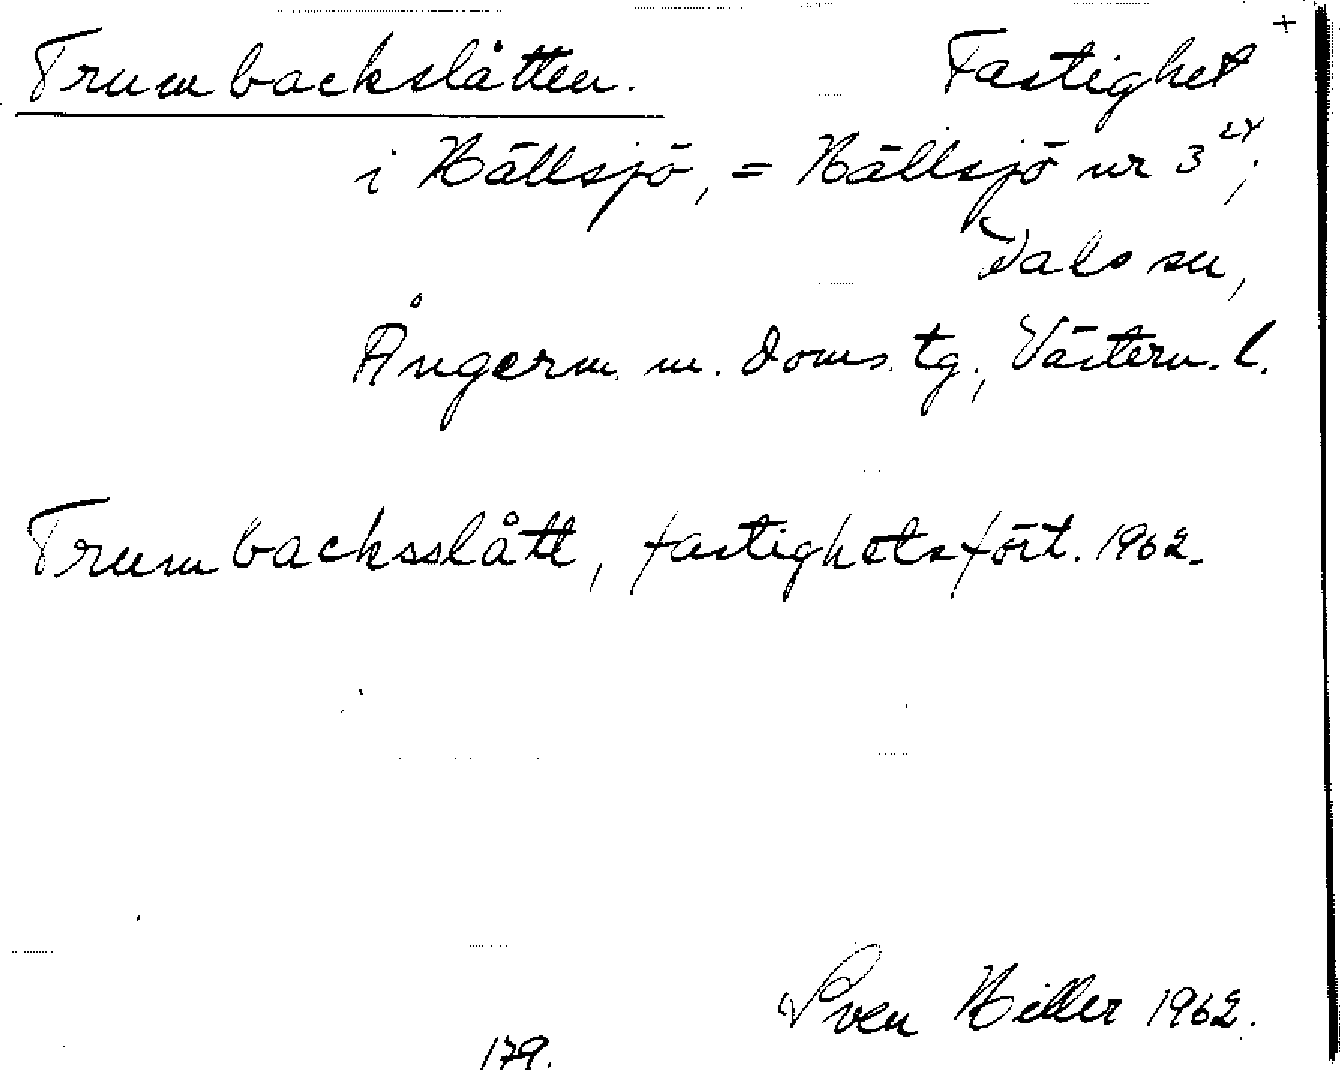 Trumbackslåtten. Fastighet +
i Hällsjö, = Hällsjö nr 3²⁴;
Dals sn,
Ångerm. m. doms. tg., Västern. l.
Trumbacksslått, fastighetsfört. 1962.
Sven Hiller 1962.
179.